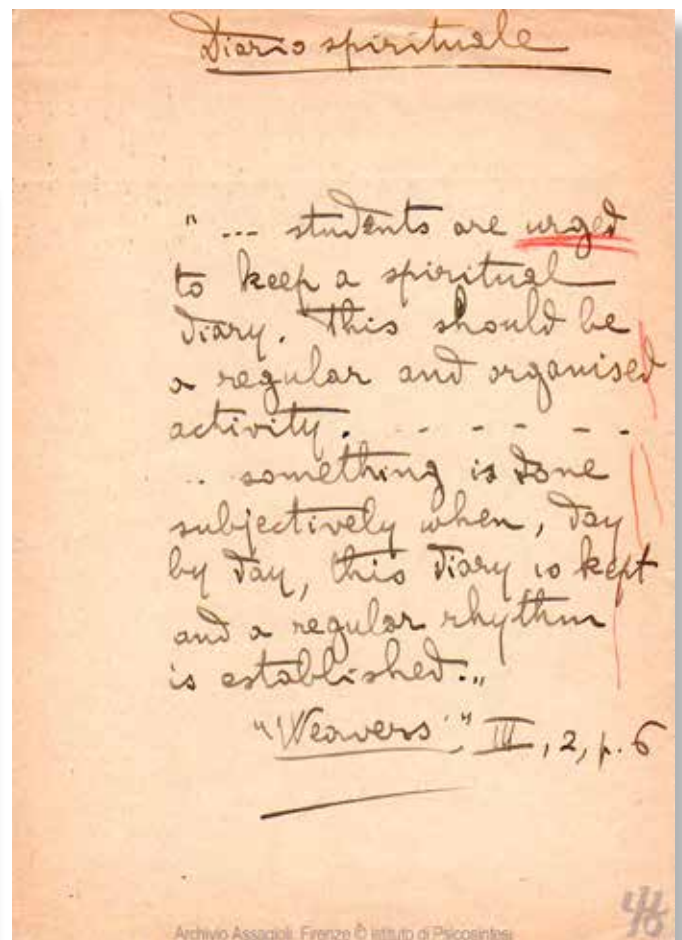 Diario spirituale
" --- students are urged
to keep a spiritual
diary. This should be
a regular and organised
activity. - - - - -
.. something is done
subjectively when, day
by day, this diary is kept
and a regular rhythm
is established.„
"Weavers", III, 2, p. 6
Archivio Assagioli, Firenze © Istituto di Psicosintesi